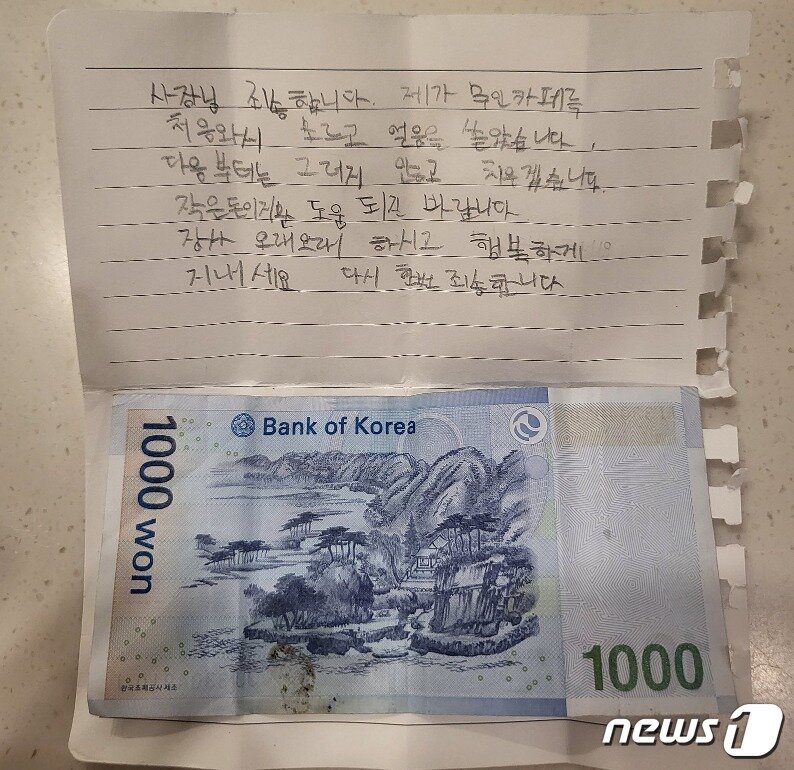 사장님 죄송합니다. 제가 무인카페를
처음와서 모르고 얼음을 쏟았습니다.
다음부터는 그러지 않고 치우겠습니다.
작은돈이지만 도움 되길 바랍니다
장사 오래오래 하시고 행복하게
지내세요 다시 한번 죄송합니다
Bank of Korea
1000 won
1000
한국조폐공사 제조
news1